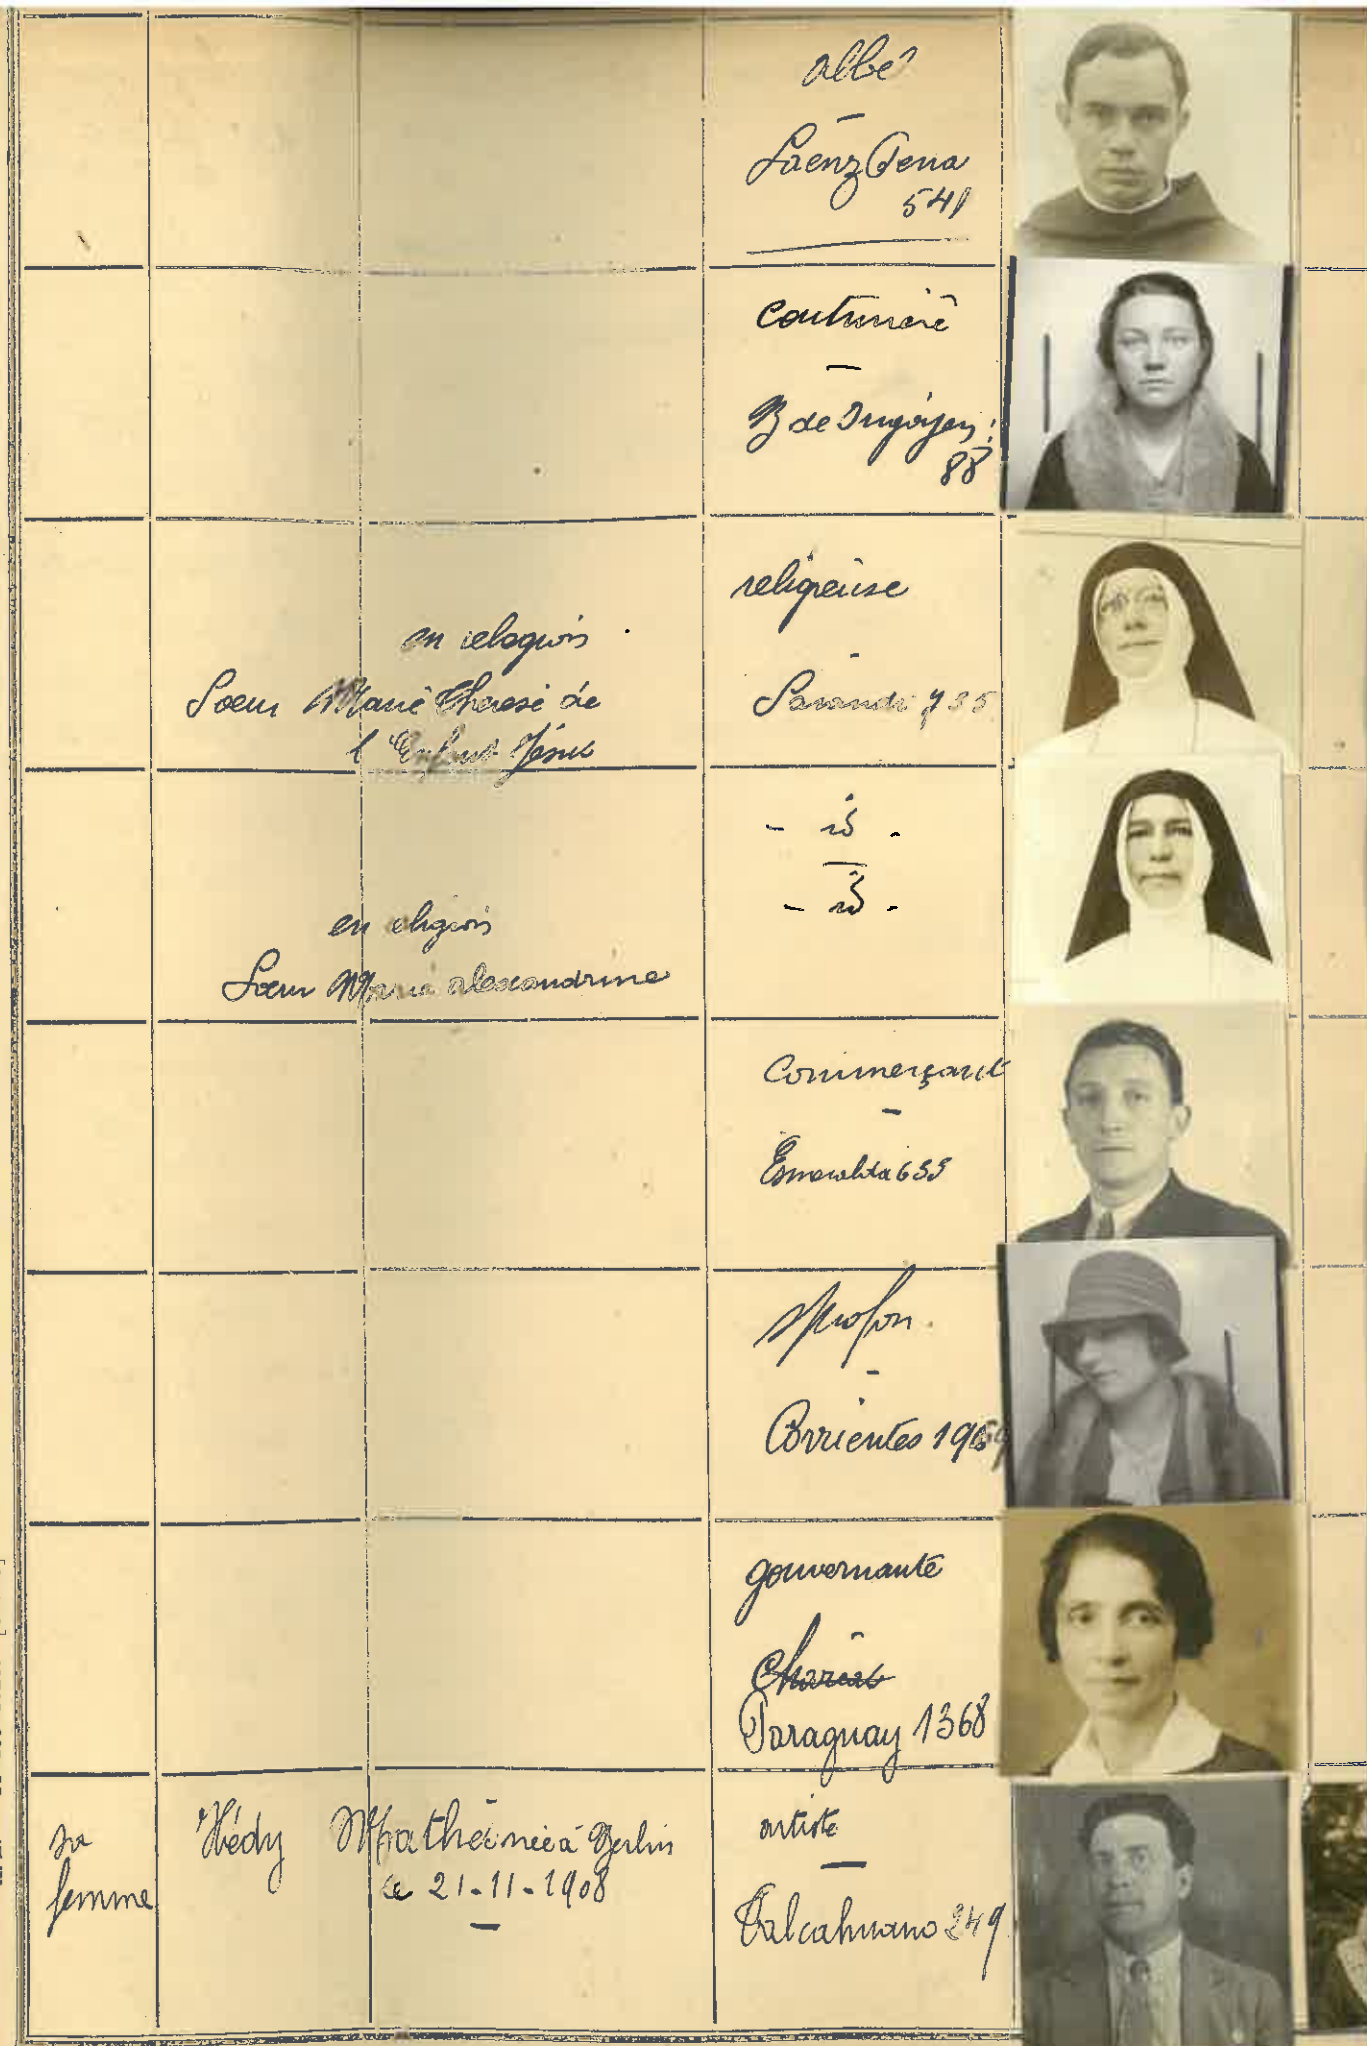 abbé
Saenz Pena
541
couturière
B de Irigoyen
88
religieuse
en religion
Soeur Marie Therese de
l'Enfant Jésus
Sarandi 735
- id -
- id -
en religion
Soeur Marie Alexandrine
Commerçant
Esmeralda 655
Corrientes
gouvernante
Paraguay 1368
sa
femme
Hédy Mathé née à Berlin
le 21-11-1908
artiste
Talcahuano 249